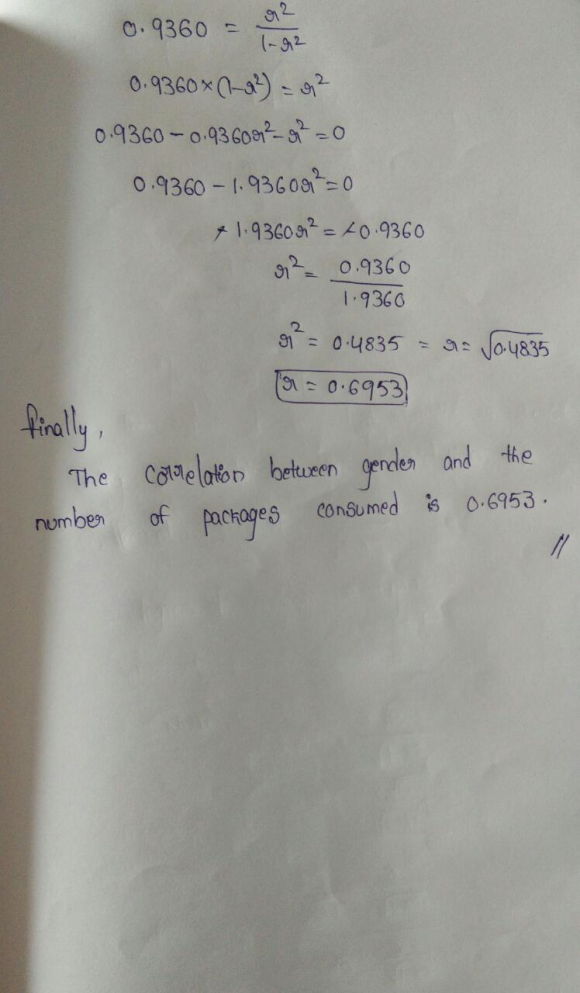 0.9360 = r²/1-r²
0.9360×(1-r²) = r²
0.9360 - 0.9360r² - r² = 0
0.9360 - 1.9360r² = 0
-1.9360r² = -0.9360
r² = 0.9360/1.9360
r² = 0.4835 = r = √0.4835
r = 0.6953
finally,
The correlation between gender and the
number of packages consumed is 0.6953.
//